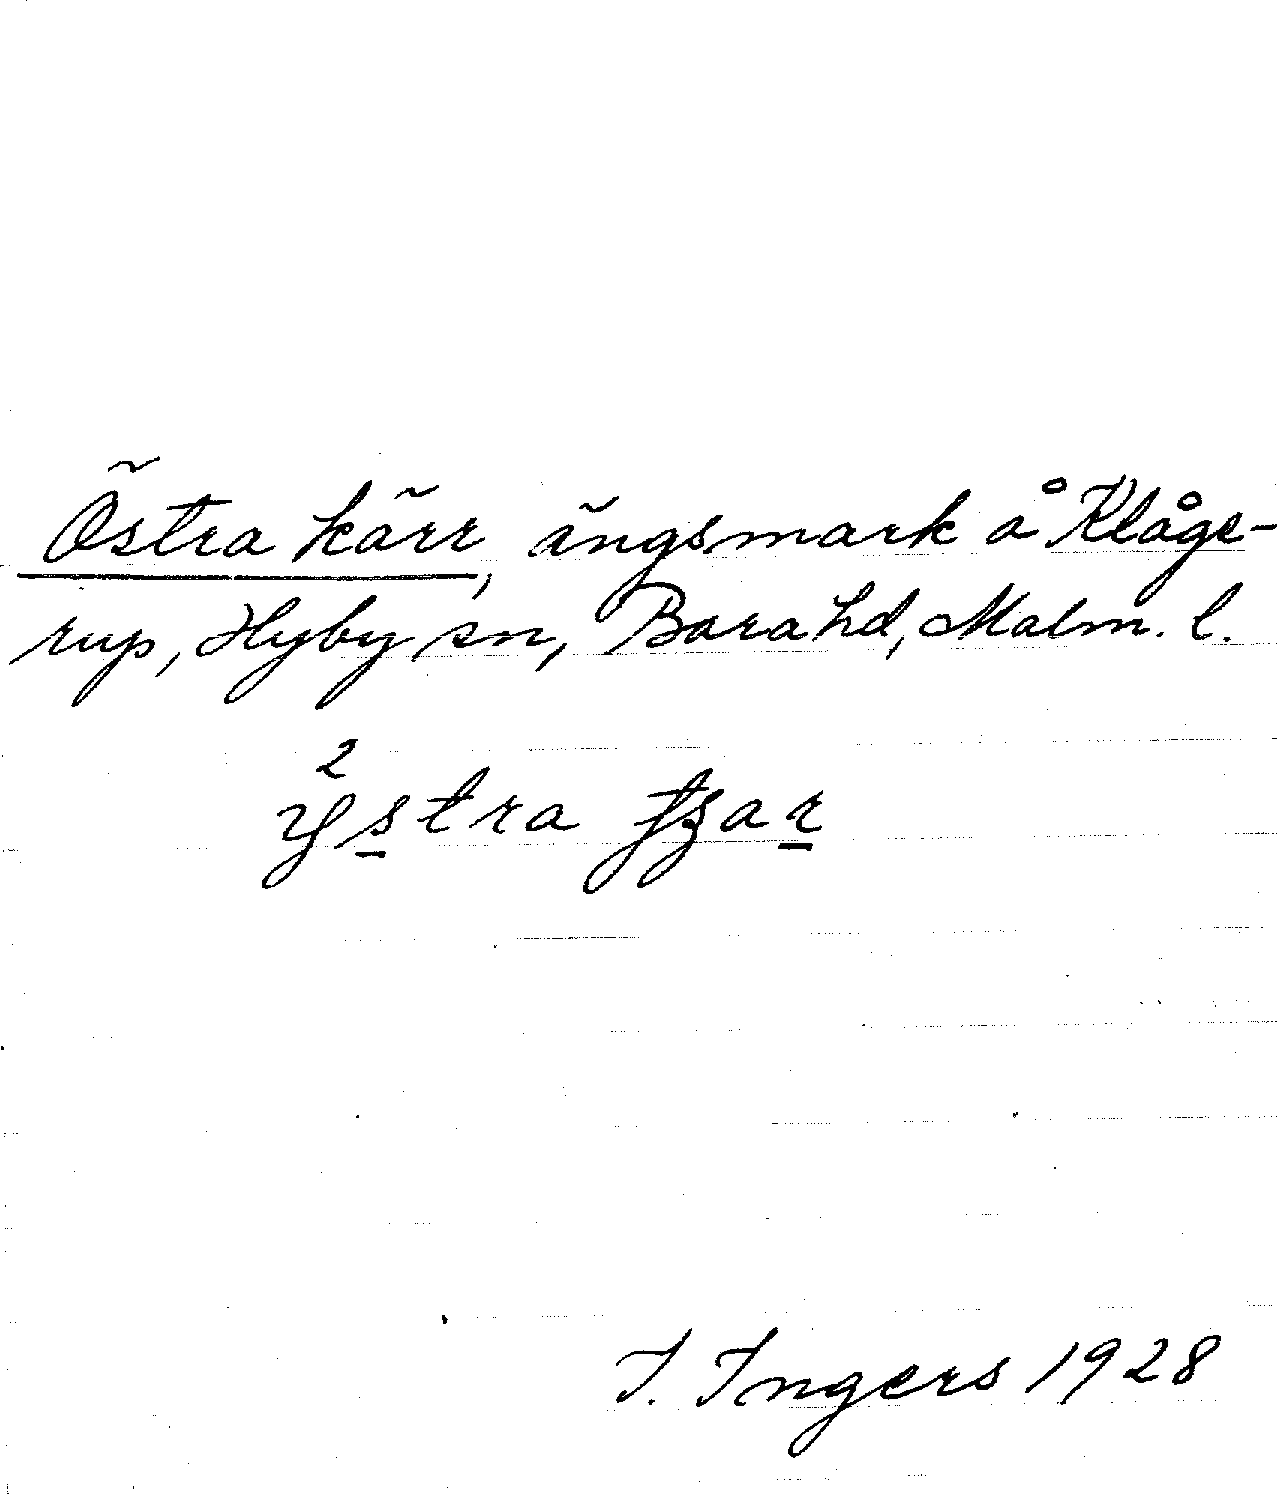 Östra kärr, ängsmark å Klåge-
rup, Hyby sn, Bara hd, Malm. l.
I. Ingers 1928